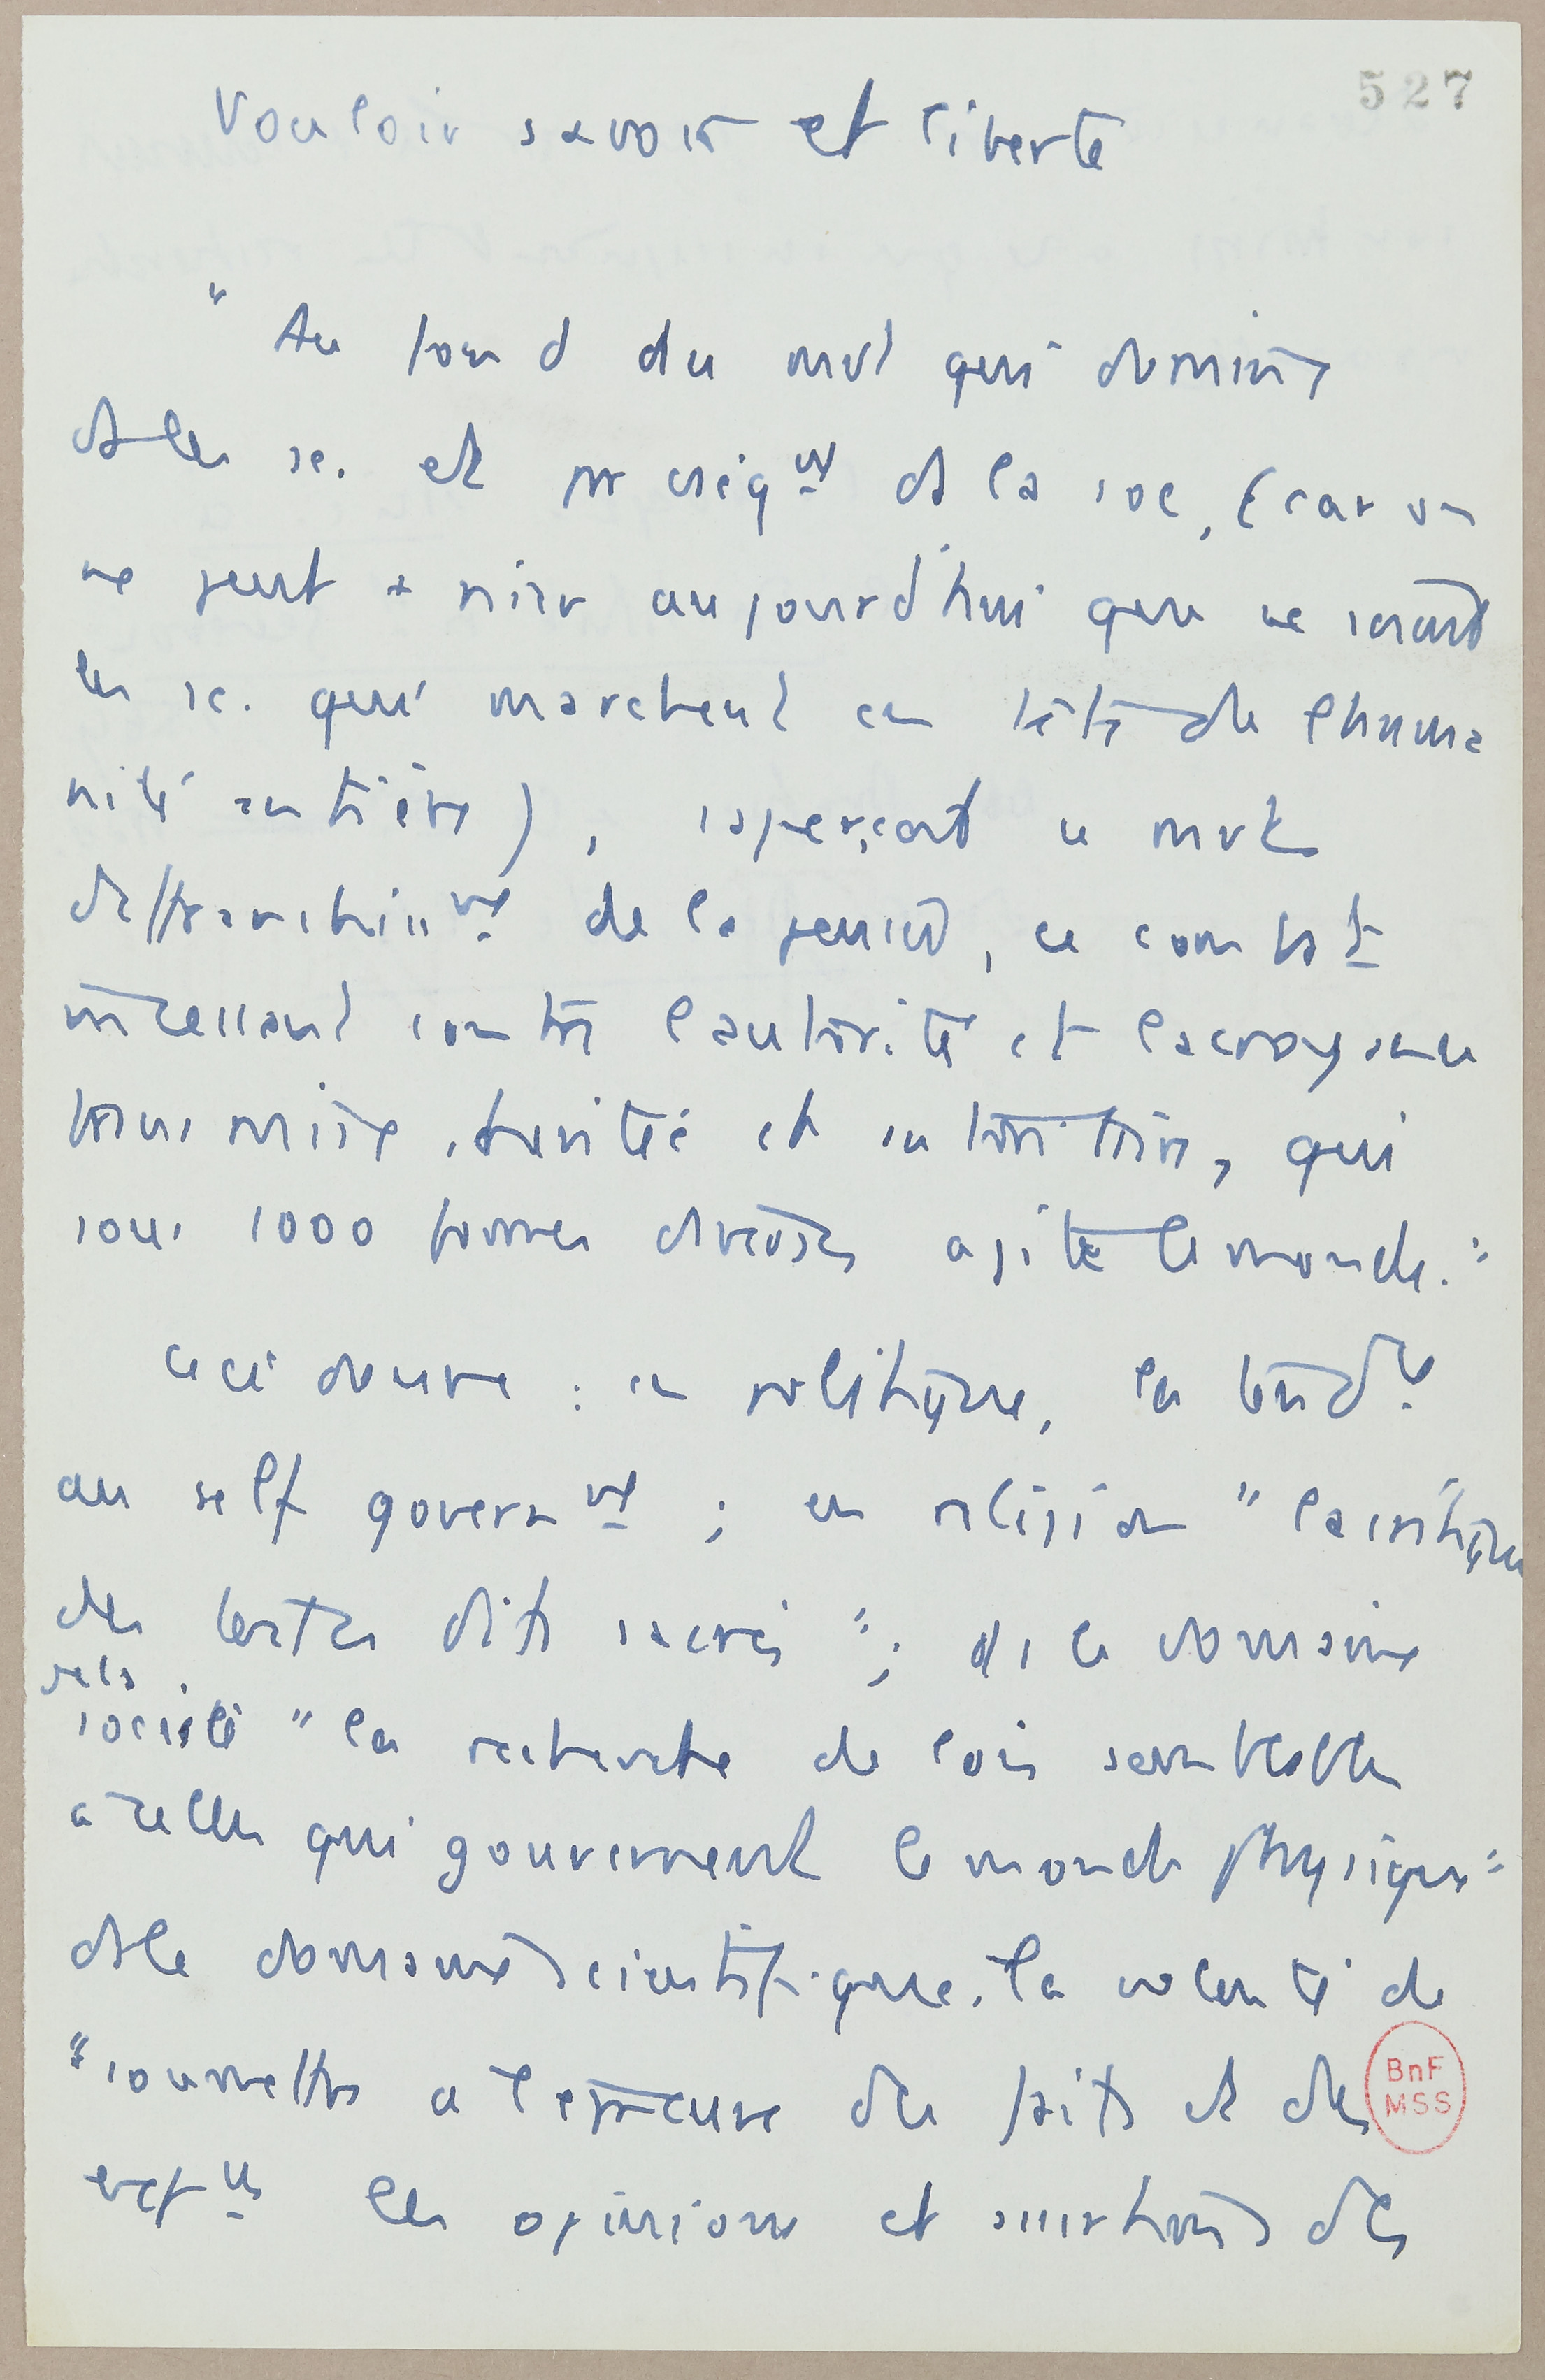 527
Vouloir savoir et liberté
" Au fond du mvt qui domine
ds les sc. et par cséqt ds la soc, (car on
ne peut + nier aujourd'hui que ce sont
les sc. qui marchent en tête de l'huma
nité entière), s'aperçoit ce mvt
d'affranchisst de la pensée, ce combat
incessant contre l'autorité et la croyance
transmise et autoritaire, qui
sous 1000 formes diverses agite le monde."
Ceci donne : en politique, la tendce
au self governt ; en religion "la critique
des textes dits sacrés" ; ds le domaine
de la
société "la recherche de lois semblables
à celles qui gouvernent le monde physique"
ds le domaine scientifique, la volonté de
"soumettre à l'épreuve des faits et des
les opinions et assertions des
BnF
MSS